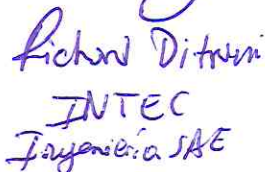 Richard Ditrani
INTEC
Ingenieria SAE